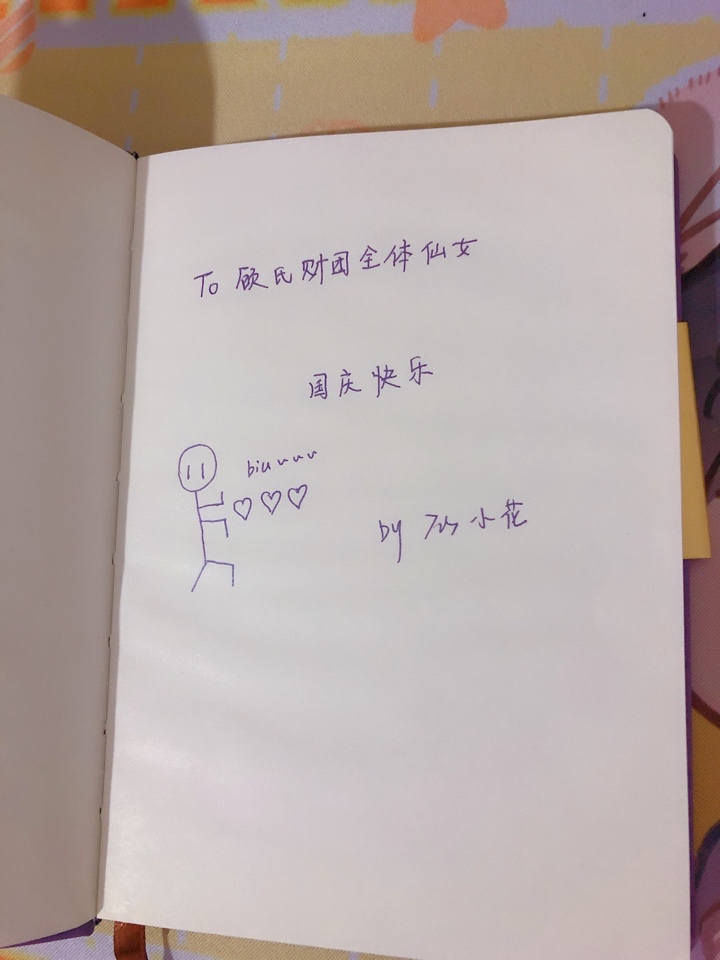 To 顾氏财团全体仙女
国庆快乐
biuuuu
by 小花